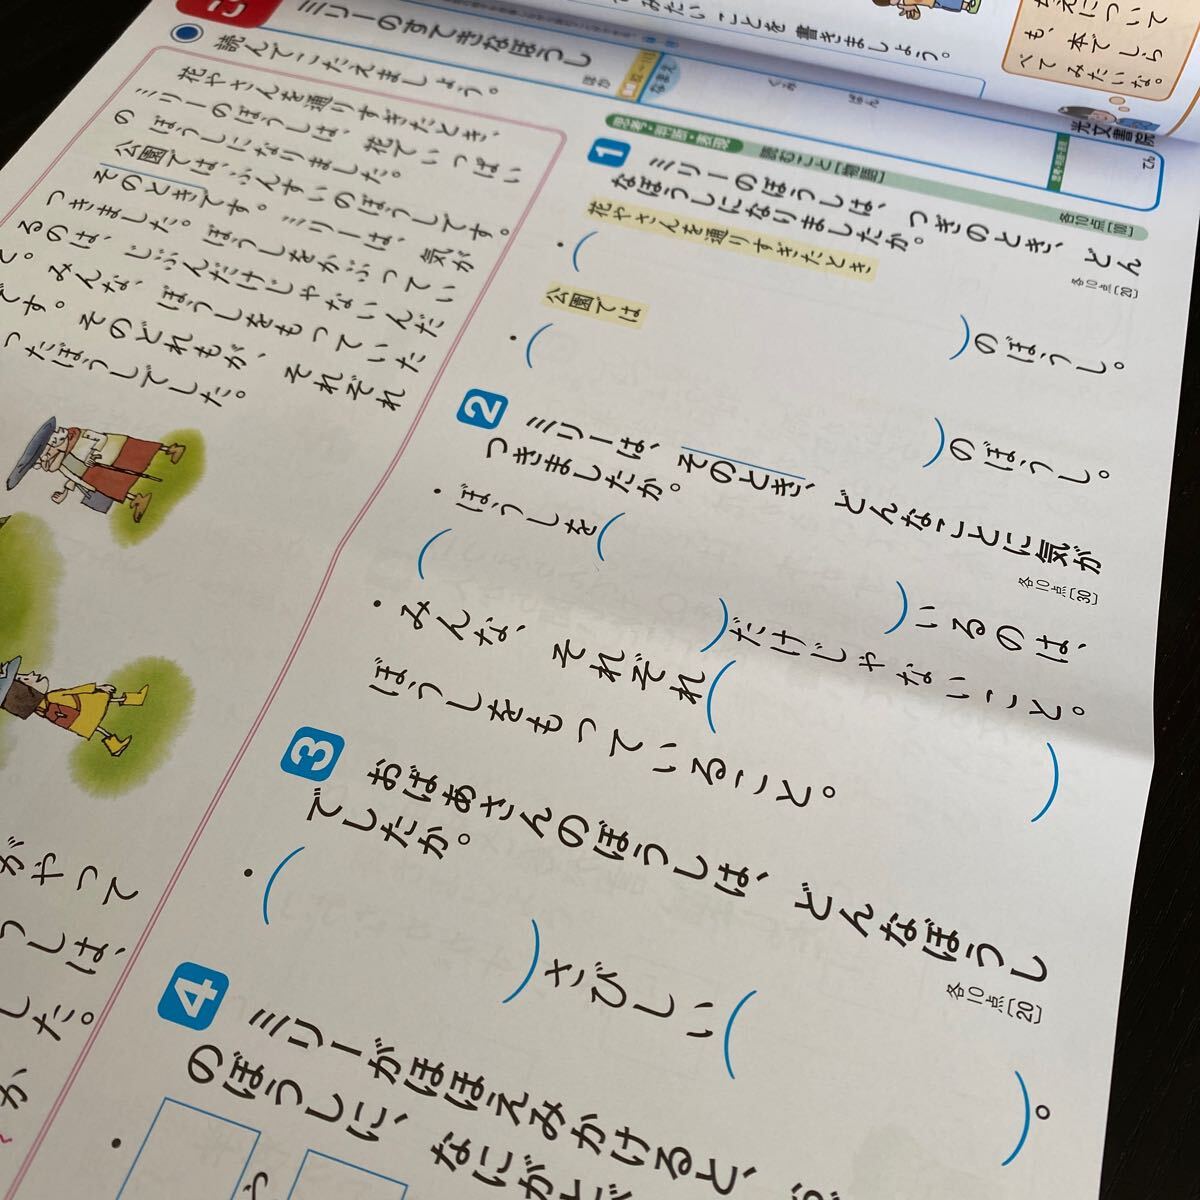 てみたいことを書きましょう。
について
も、本でしら
べてみたいな。
光文書院
ミリーのすてきなぼうし
ほか
なまえ
くみ
ばん
読んでこたえましょう。
花やさんを通りすぎたとき、
ミリーのぼうしは、花でいっぱい
のぼうしになりました。
公園では、ふんすいのぼうしです。
そのときです。ミリーは、気が
つきました。ぼうしをかぶってい
るのは、じぶんだけじゃないんだ
て。みんな、ぼうしをもっていた
です。そのどれもが、それぞれ
ったぼうしでした。
がやって
うしは、
した。
か、
思考・判断・表現
読むこと[物語]
各10点[100]
1
ミリーのぼうしは、つぎのとき、どん
なぼうしになりましたか。
各10点[20]
花やさんを通りすぎたとき
・( )のぼうし。
公園では
・( )のぼうし。
2
ミリーは、そのとき、どんなことに気が
つきましたか。
各10点[30]
・ぼうしを( )いるのは、
( )だけじゃないこと。
・みんな、それぞれ( )
ぼうしをもっていること。
3
おばあさんのぼうしは、どんなぼうし
でしたか。
各10点[20]
・( )さびしい( )。
4
ミリーがほほえみかけると、
のぼうしに、なにがど